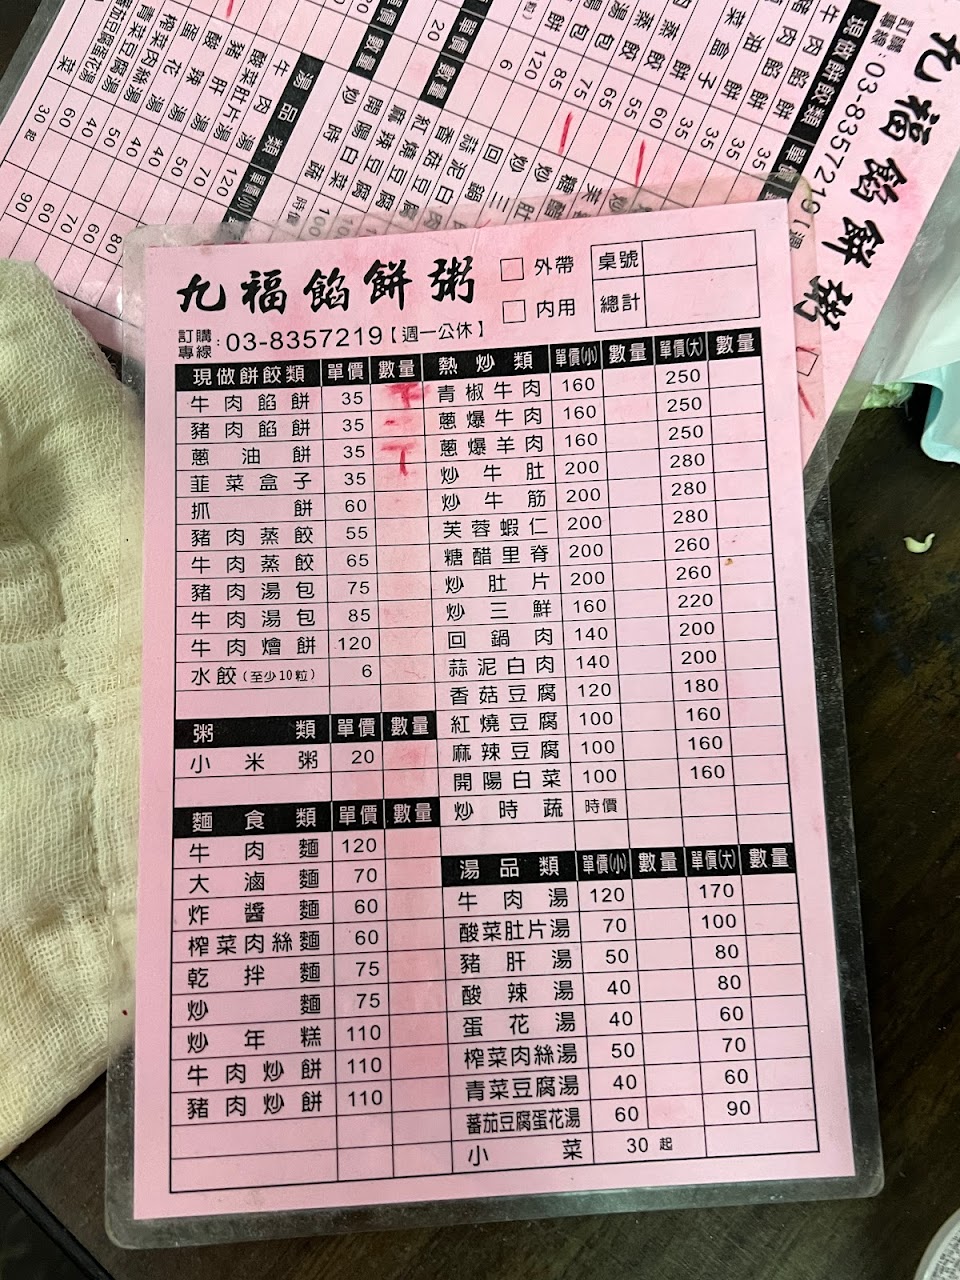 九福餡餅粥
訂購專線:03-8357219【週一公休】
外帶
內用
桌號
總計
現做餅餃類 單價 數量
牛肉餡餅 35
豬肉餡餅 35
蔥油餅 35
韮菜盒子 35
抓餅 60
豬肉蒸餃 55
牛肉蒸餃 65
豬肉湯包 75
牛肉湯包 85
牛肉燴餅 120
水餃(至少10粒) 6
粥類 單價 數量
小米粥 20
麵食類 單價 數量
牛肉麵 120
大滷麵 70
炸醬麵 60
榨菜肉絲麵 60
乾拌麵 75
炒麵 75
炒年糕 110
牛肉炒餅 110
豬肉炒餅 110
熱炒類 單價(小) 數量 單價(大) 數量
青椒牛肉 160 250
蔥爆牛肉 160 250
蔥爆羊肉 160 250
炒牛肚 200 280
炒牛筋 200 280
芙蓉蝦仁 200 280
糖醋里脊 200 260
炒肚片 200 260
炒三鮮 160 220
回鍋肉 140 200
蒜泥白肉 140 200
香菇豆腐 120 180
紅燒豆腐 100 160
麻辣豆腐 100 160
開陽白菜 100 160
炒時蔬 時價
湯品類 單價(小) 數量 單價(大) 數量
牛肉湯 120 170
酸菜肚片湯 70 100
豬肝湯 50 80
酸辣湯 40 80
蛋花湯 40 60
榨菜肉絲湯 50 70
青菜豆腐湯 40 60
蕃茄豆腐蛋花湯 60 90
小菜 30起